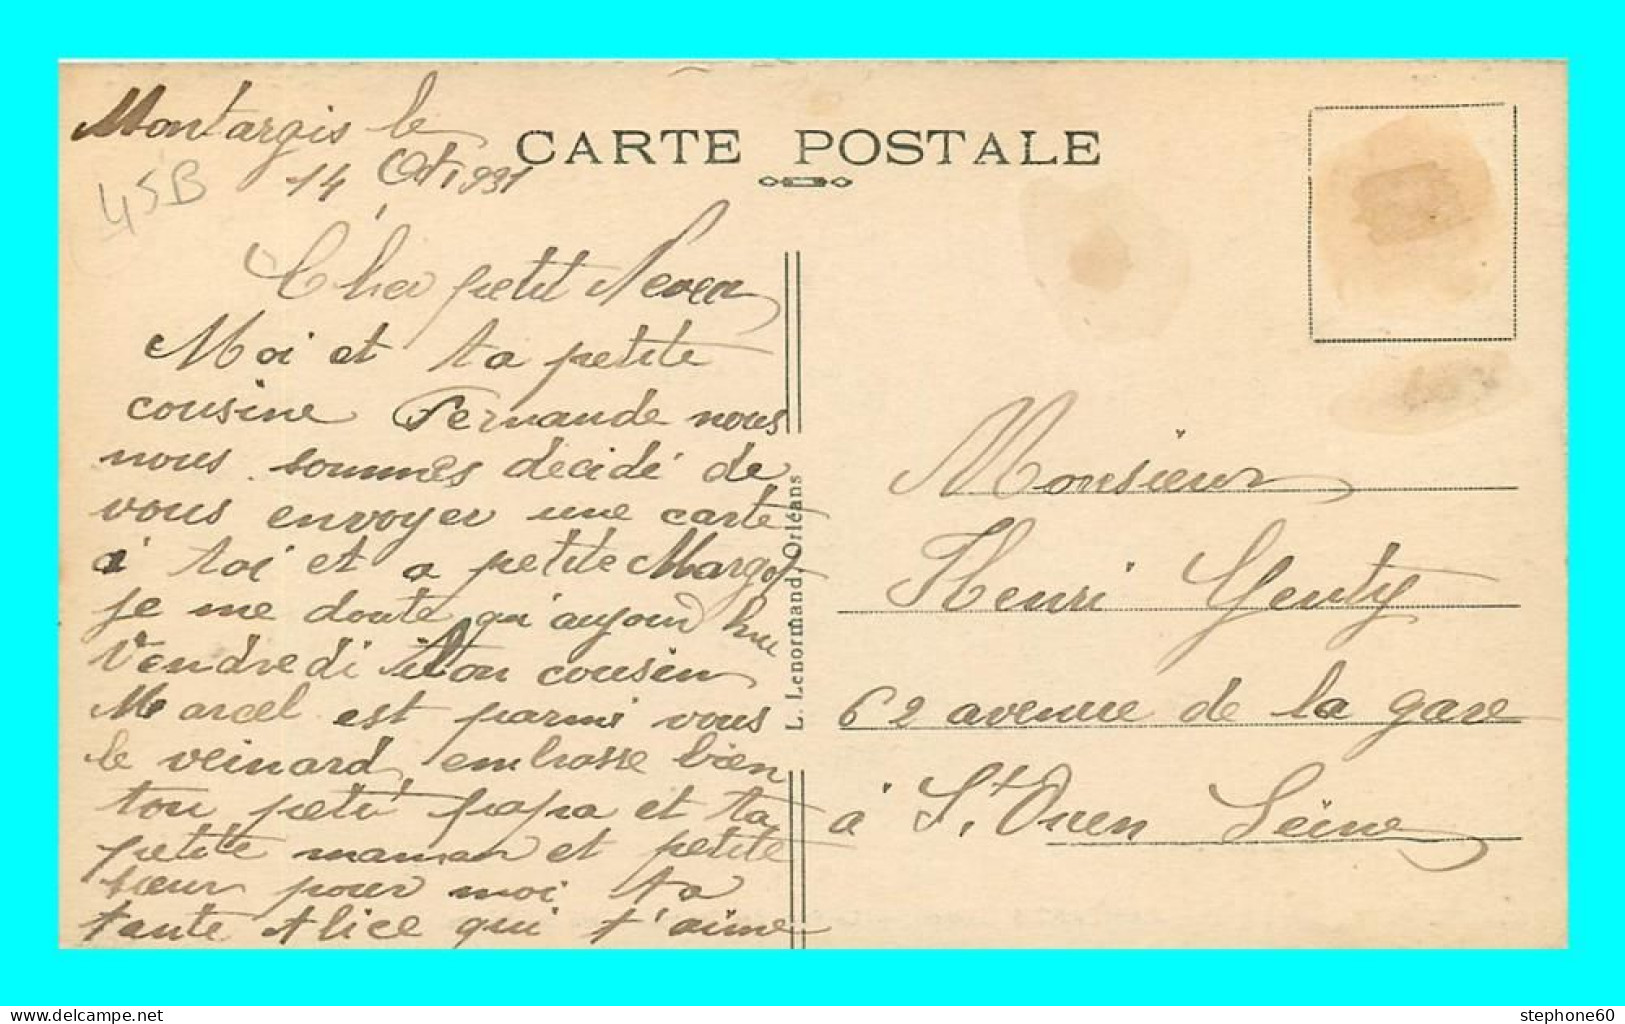 Montargis le
14 Oct 1931
45B
CARTE POSTALE
Cher petit Neveu
Moi et ta petite
cousine Fernande nous
nous sommes decidé de
vous envoyer une carte
a toi et a petite Margot
je me doute qu'aujourd hui
Vendredi Mon cousin
Marcel est parmi vous
le veinard, embrasse bien
ton petit papa et ta
petite maman et petite
sœur pour moi ta
tante Alice qui t'aime
L. Lenormand, Orléans
Monsieur
Henri Genty
62 avenue de la gare
à St. Ouen Seine
delcampe.net
stephone60